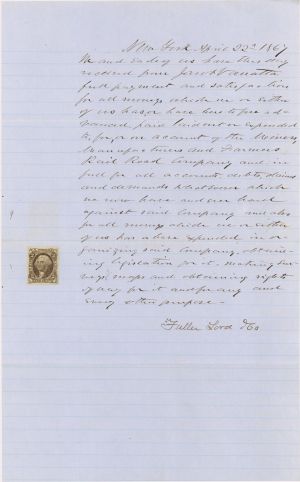 New York April 22d 1867
We and each of us have this day
received from Jacob Vanatta
full payment and satisfaction
for all moneys which we or either
of us has or have heretofore ad-
vanced, paid, laid out or expended
to, for or on account of the Miners
Manufacturers and Farmers
Rail Road Company and in
full for all accounts, debts, claims
and demands whatsoever which
we now have and ever had
against said Company and also
for all moneys which we or either
of us has or have expended in or-
ganizing said Company, obtain-
ing legislation for it, making sur-
veys, maps and obtaining rights
of way for it and for any and
every other purpose.
Fuller Lord & Co